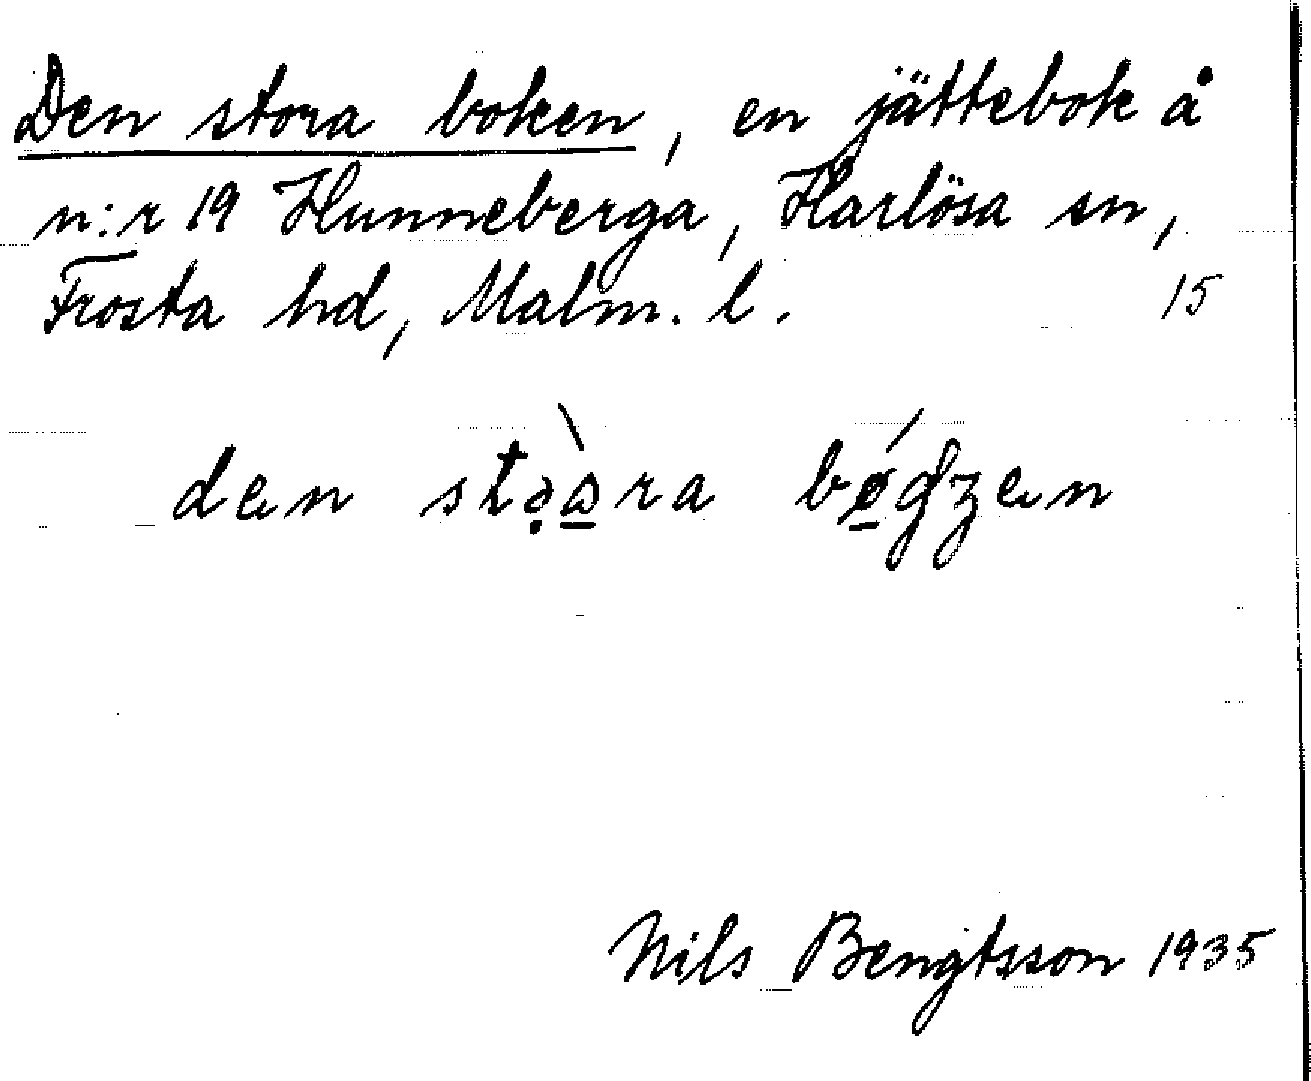 Den stora boken, en jättebok å
n:r 19 Hunneberga, Harlösa sn,
Frosta hd, Malm. l. 15
den
Nils Bengtsson 1935